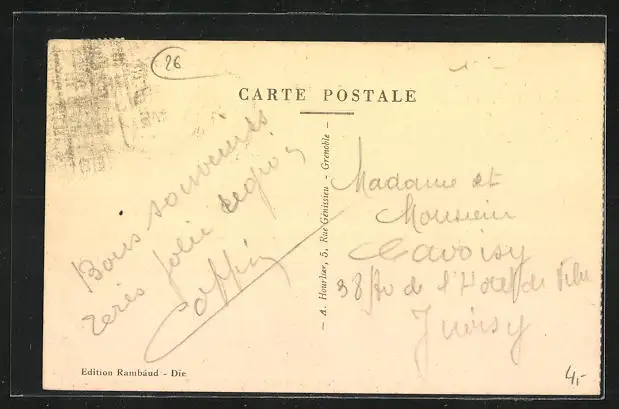 26
CARTE POSTALE
Bons souvenirs
jolie région
Coppin
— A. Hourlier, 5, Rue Génissieu - Grenoble —
Madame et
Monsieur
Lavoisy
38 de l'Hotel de Ville
Juvisy
Edition Rambaud - Die
4,-